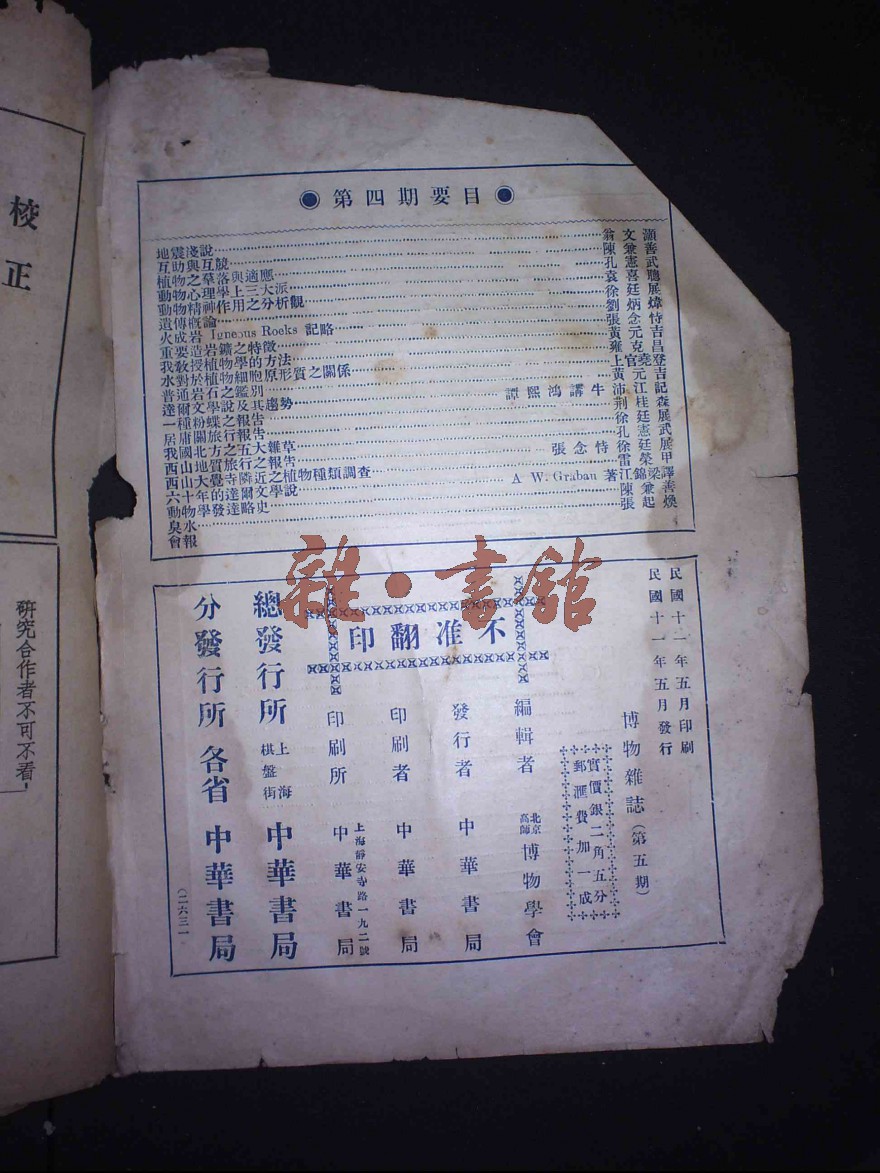 校正
研究合作者不可不看，
◉ 第四期要目 ◉
地震淺說 翁文灝
互助與互競 陳兼善
植物之羣落與適應 孔憲武
動物心理學上三大派 袁喜聽
動物精神作用之分析觀 徐廷展
遺傳概論 劉炳煒
火成岩 Igneous Rocks 記略 張念恃
重要造岩鑛物之特徵 黃元吉
我教授植物學的方法 雍克昌
水對於植物細胞原形質之關係 上官堯登
普通岩石之鑑別 黃元吉
達爾文學說及其趨勢 譚熙鴻講 牛沛江記
一種粉蝶 荆桂森
居庸關旅行報告 徐廷展
我國北方之五大雜草 孔憲武
西山地質旅行報告 張念恃 徐廷展
西山大覺寺隣近之植物種類調查 雷榮甲
六十年的達爾文學說 A W. Grabau 著 江錦梁譯
動物學發達略史 陳兼善
臭水 張起煥
會報
雜·書館
民國十一年五月印刷
民國十一年五月發行
博物雜誌（第五期）
實價銀二角五分
郵滙費加一成
不准翻印
編輯者 北京高師 博物學會
發行者 中華書局
印刷者 中華書局
印刷所 上海靜安寺路一九二號 中華書局
總發行所 上海棋盤街 中華書局
分發行所 各省 中華書局
（二六三一）